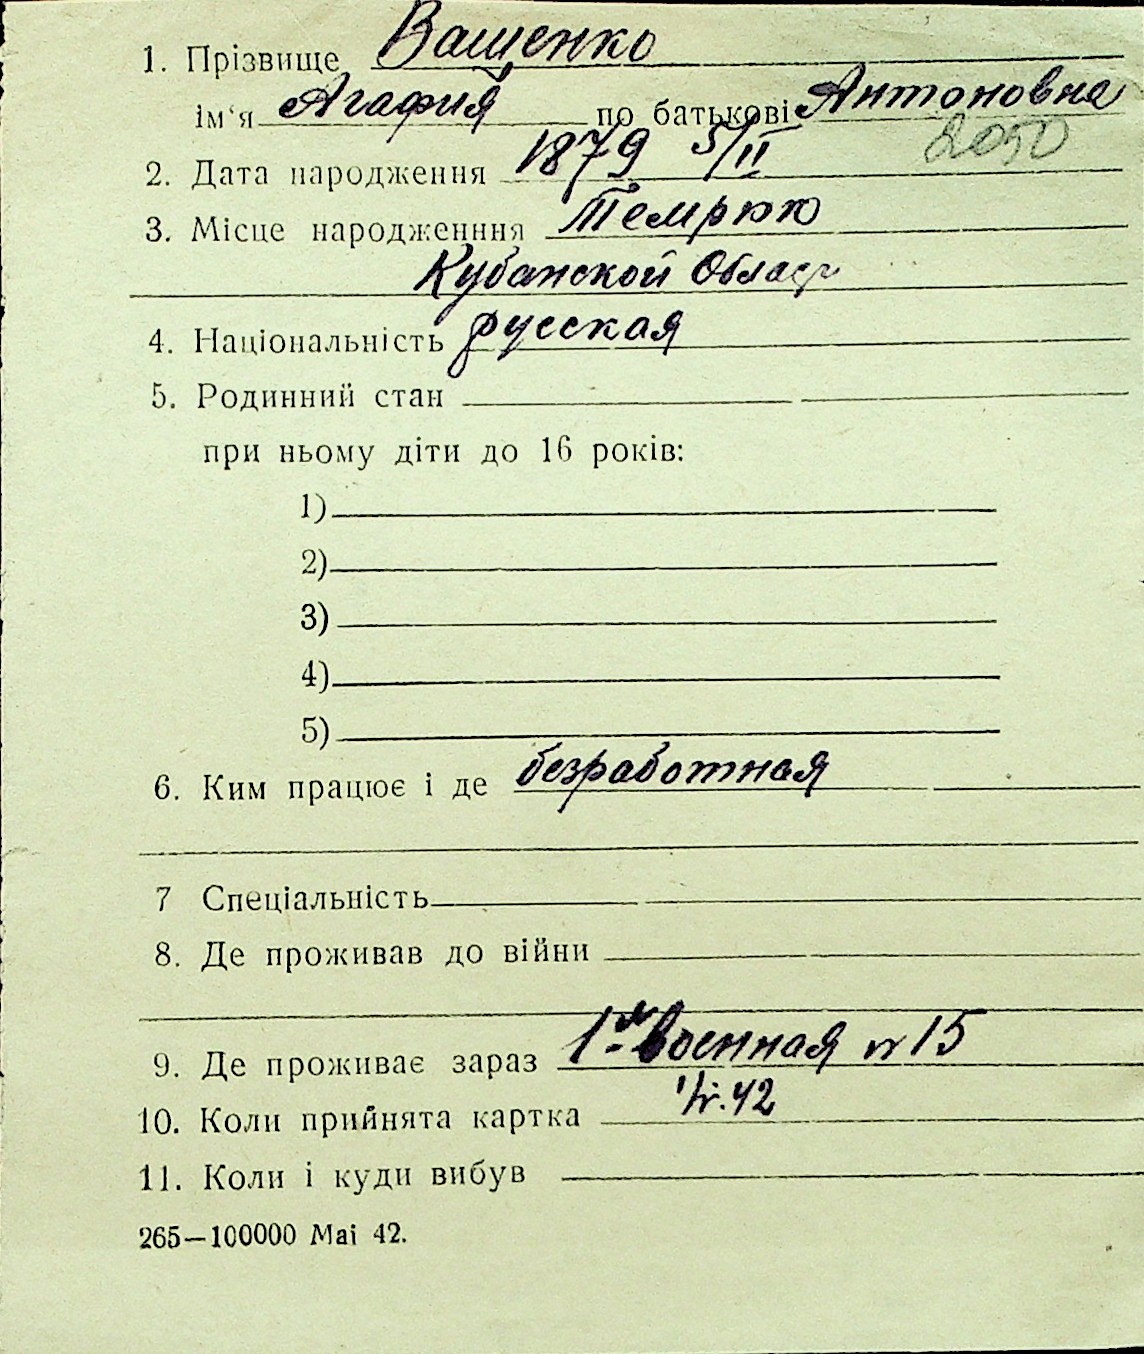 1. Прізвище Ващенко
ім‘я Агафия по батькові Антоновна
2050
2. Дата народження 1879 5/II
3. Місце народженння Темрюк
Кубанской Области
4. Національність русская
5. Родинний стан
при ньому діти до 16 років:
1)
2)
3)
4)
5)
6. Ким працює і де безработная
7 Спеціальність
8. Де проживав до війни
9. Де проживає зараз 1я военная № 15
10. Коли прийнята картка 42
11. Коли і куди вибув
265—100000 Mai 42.